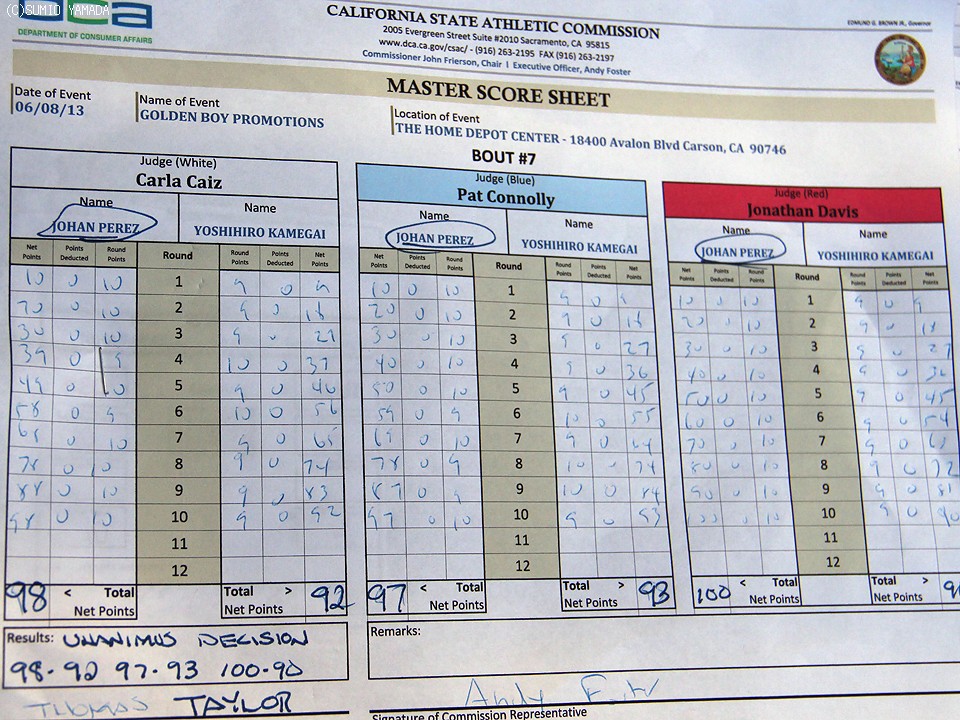 (C)SUMIO YAMADA
dca
DEPARTMENT OF CONSUMER AFFAIRS
CALIFORNIA STATE ATHLETIC COMMISSION
2005 Evergreen Street Suite #2010 Sacramento, CA 95815
www.dca.ca.gov/csac/ - (916) 263-2195 FAX (916) 263-2197
Commissioner John Frierson, Chair | Executive Officer, Andy Foster
EDMUND G. BROWN JR., Governor
MASTER SCORE SHEET
Date of Event
06/08/13
Name of Event
GOLDEN BOY PROMOTIONS
Location of Event
THE HOME DEPOT CENTER - 18400 Avalon Blvd Carson, CA 90746
BOUT #7
Judge (White)
Carla Caiz
Name Name
JOHAN PEREZ YOSHIHIRO KAMEGAI
Net Points Points Deducted Round Points Round Round Points Points Deducted Net Points
10 0 10 1 9 0 9
20 0 10 2 9 0 18
30 0 10 3 9 0 27
39 0 9 4 10 0 37
49 0 10 5 9 0 46
58 0 9 6 10 0 56
68 0 10 7 9 0 65
78 0 10 8 9 0 74
88 0 10 9 9 0 83
98 0 10 10 9 0 92
11
12
98 < Total Net Points Total > Net Points 92
Judge (Blue)
Pat Connolly
Name Name
JOHAN PEREZ YOSHIHIRO KAMEGAI
Net Points Points Deducted Round Points Round Round Points Points Deducted Net Points
10 0 10 1 9 0
20 0 10 2 9 0 18
30 0 10 3 9 0 27
40 0 10 4 9 0 36
50 0 10 5 9 0 45
59 0 9 6 10 0 55
69 0 10 7 9 0 64
78 0 9 8 10 0 74
87 0 9 9 10 0 84
97 0 10 10 9 0 93
11
12
97 < Total Net Points Total > Net Points 93
Judge (Red)
Jonathan Davis
Name Name
JOHAN PEREZ YOSHIHIRO KAMEGAI
Net Points Points Deducted Round Points Round Round Points Points Deducted Net Points
10 0 10 1 9 0 9
20 0 10 2 9 0 18
30 0 10 3 9 0 27
40 0 10 4 9 0 36
50 0 10 5 9 0 45
60 0 10 6 9 0 54
70 0 10 7 9 0 63
80 0 10 8 9 0 72
90 0 10 9 9 0 81
100 0 10 10 9 0 90
11
12
100 < Total Net Points Total > Net Points
Results: UNANIMUS DECISION
98-92 97-93 100-90
THOMAS TAYLOR
Remarks:
Andy
Signature of Commission Representative